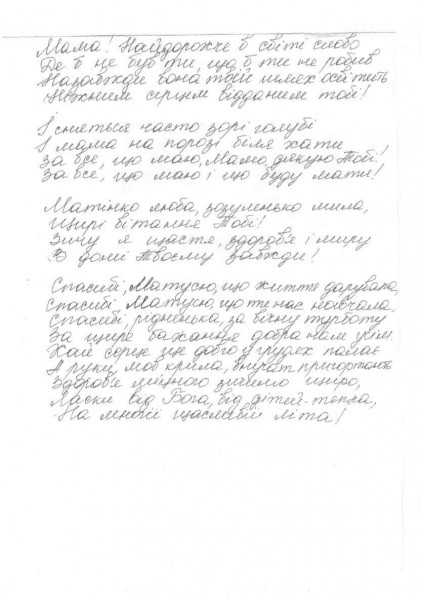 Мама! Найдорожче в світі слово
Де б не був ти, що б ти не робив
Назавжди вона твій шлях освітить
Ніжним серцем відданим тобі!
І сняться часто зорі голубі
І мама на порозі біля хати
За все, що маю, Мамо, дякую Тобі!
За все, що маю і що буду мати!
Матінко люба, зозуленько мила,
Щирі вітання Тобі!
Зичу я щастя, здоров'я і миру
В домі Твоєму завжди!
Спасибі, Матусю, що життя дарувала,
Спасибі Матусю, що ти нас навчала.
Спасибі, рідненька, за вічну турботу
За щире бажання добра нам усім.
Хай серце ще довго у грудях палає
А руки, мов крила, внучат пригортають
Здоров'я міцного зичимо щиро,
Ласки від Бога, від дітей - тепла,
На многії щасливії літа!